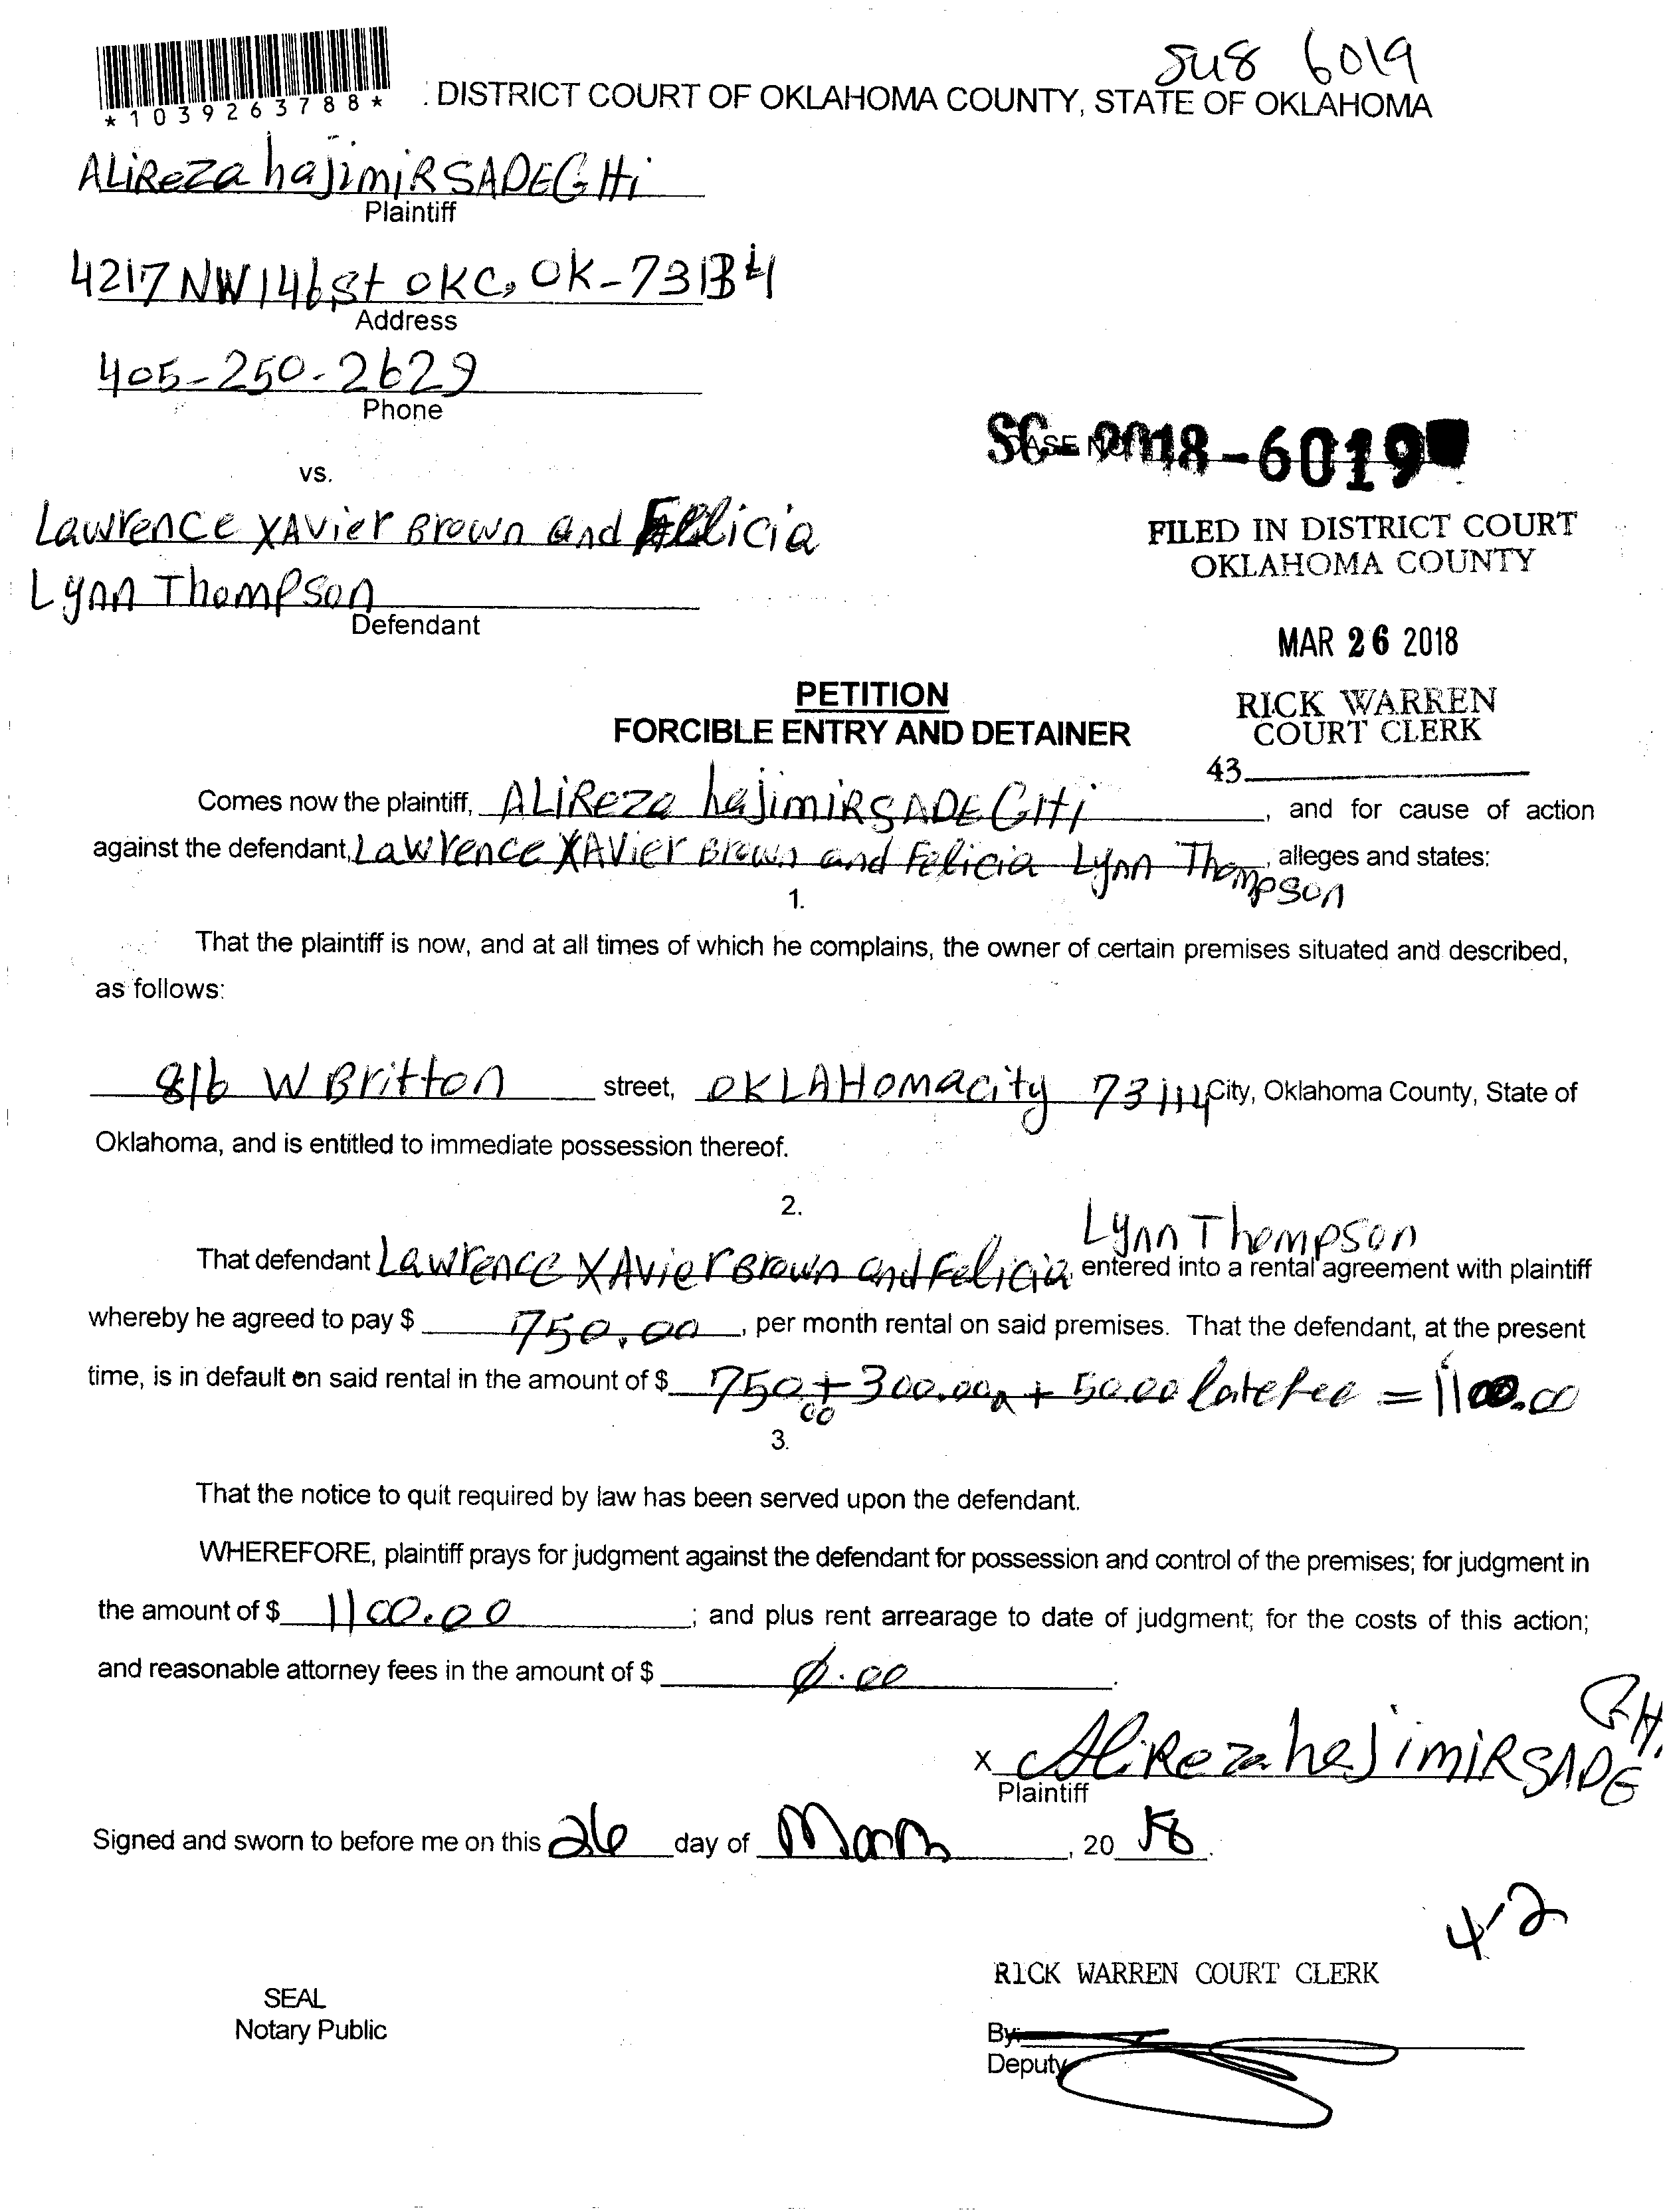 SU8 6019
*1039263788*
DISTRICT COURT OF OKLAHOMA COUNTY, STATE OF OKLAHOMA
ALiReza hajimiRSADEGHi
Plaintiff
4217 NW 146 St OKC, OK-73134
Address
405-250-2629
Phone
SC-2018-6019
CASE NO.
vs.
Lawrence XAvier Brown and Felicia
Lynn Thompson
Defendant
FILED IN DISTRICT COURT
OKLAHOMA COUNTY
MAR 26 2018
RICK WARREN
COURT CLERK
43
PETITION
FORCIBLE ENTRY AND DETAINER
Comes now the plaintiff, ALiReza hajimiRSADEGHi, and for cause of action
against the defendant, Lawrence XAvier Brown and Felicia Lynn Thompson, alleges and states:
1.
That the plaintiff is now, and at all times of which he complains, the owner of certain premises situated and described,
as follows:
816 W Britton street, OKLAHomacity 73114 City, Oklahoma County, State of
Oklahoma, and is entitled to immediate possession thereof.
2.
That defendant Lawrence XAvier Brown and Felicia Lynn Thompson, entered into a rental agreement with plaintiff
whereby he agreed to pay $ 750.00, per month rental on said premises. That the defendant, at the present
time, is in default on said rental in the amount of $ 750.00 + 300.00 + 50.00 late fee = 1100.00
3.
That the notice to quit required by law has been served upon the defendant.
WHEREFORE, plaintiff prays for judgment against the defendant for possession and control of the premises; for judgment in
the amount of $ 1100.00; and plus rent arrearage to date of judgment; for the costs of this action;
and reasonable attorney fees in the amount of $ 0.00.
X ALiReza hajimiRSADEGH.
Plaintiff
Signed and sworn to before me on this 26 day of March, 20 18.
42
RICK WARREN COURT CLERK
SEAL
Notary Public
By:
Deputy